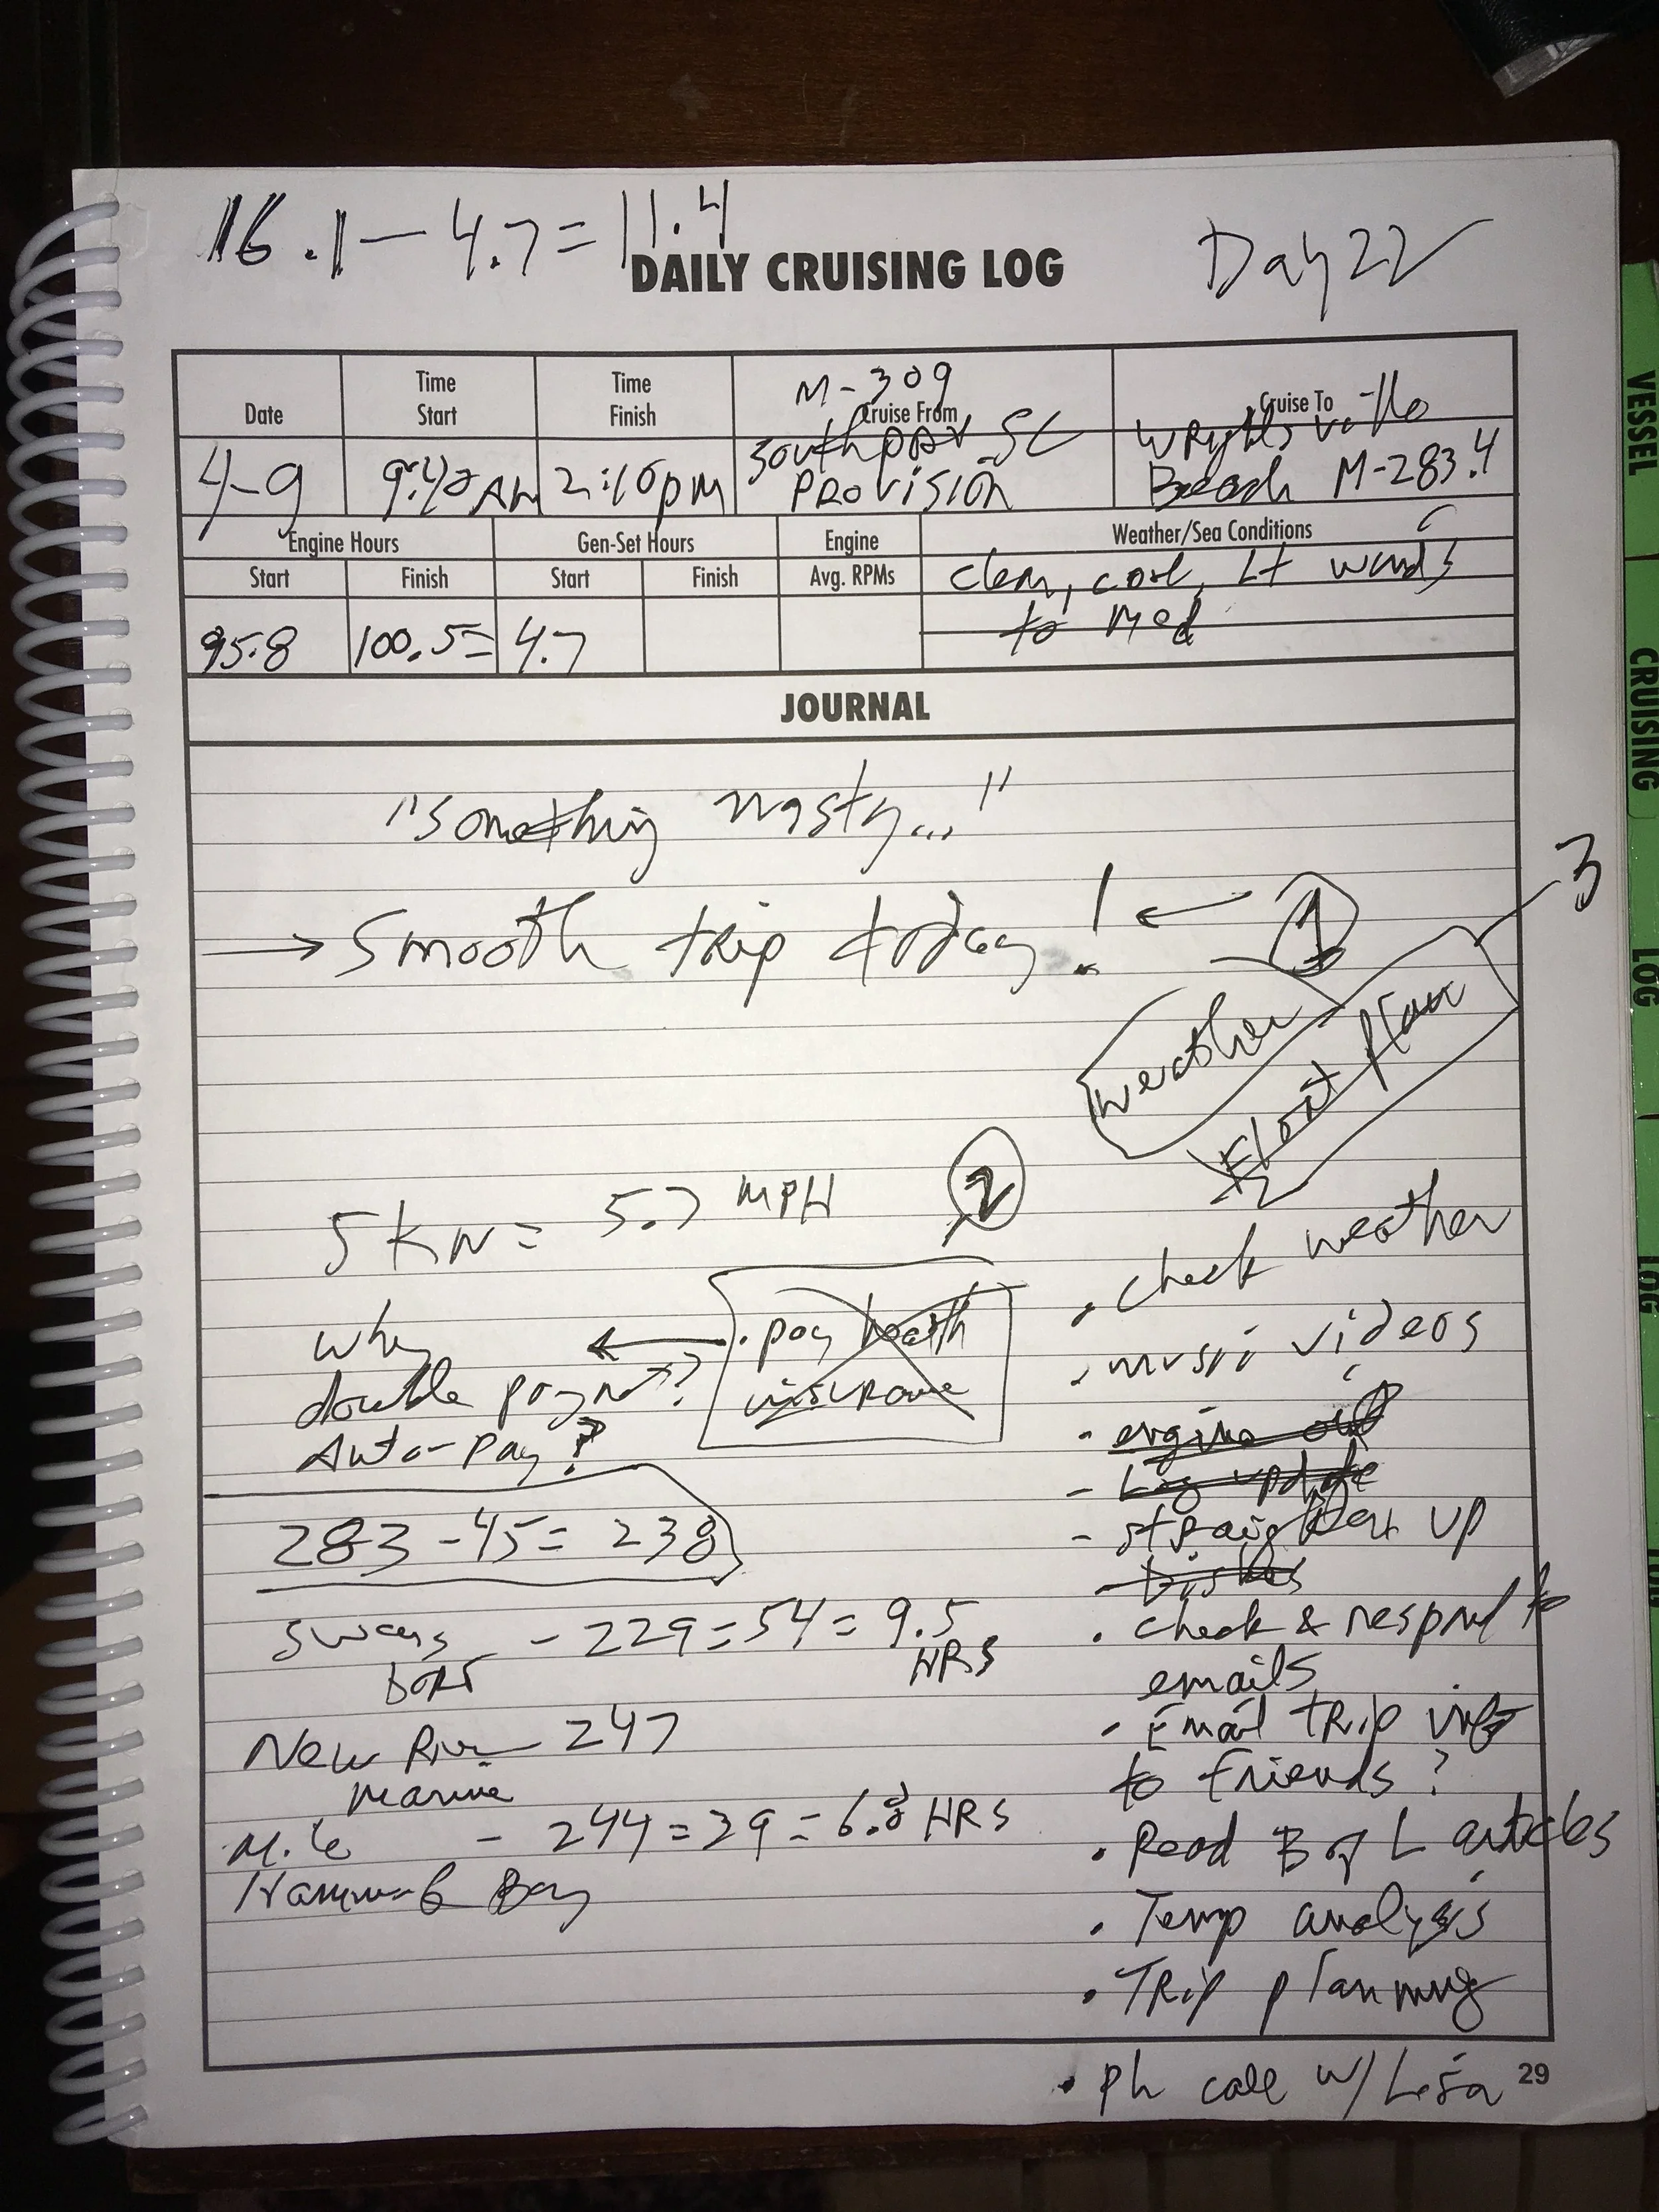 16.1 - 4.7 = 11.4
DAILY CRUISING LOG
Day 22
Date
Time
Start
Time
Finish
M-309
Cruise From
Cruise To
4-9
9:40 AM
2:10 pm
Southport SC
PROVISION
WRightsville
Beach M-283.4
Engine Hours
Gen-Set Hours
Engine
Weather/Sea Conditions
Start
Finish
Start
Finish
Avg. RPMs
clear, cool, Lt winds
to Med
95.8
100.5=
4.7
JOURNAL
"something nasty..."
→ Smooth trip today! ←
1
3
weather
Float plan
5 KN = 5.7 MPH
2
• check weather
• pay health
insurance
why
double paymt?
Auto-pay?
• music videos
- engine oil
- Log update
- straighten up
- Dishes
283 - 45 = 238
Swans
boro
- 229 = 54 = 9.5
HRS
• check & respond to
emails
New River
Marine
- 247
- Email trip info
to friends?
Mile
Hammock Bay
- 244 = 39 = 6.8 HRS
• Read B of L articles
• Temp analysis
• TRip planning
• ph call w/ Lisa
29
VESSEL
CRUISING
LOG
LOG